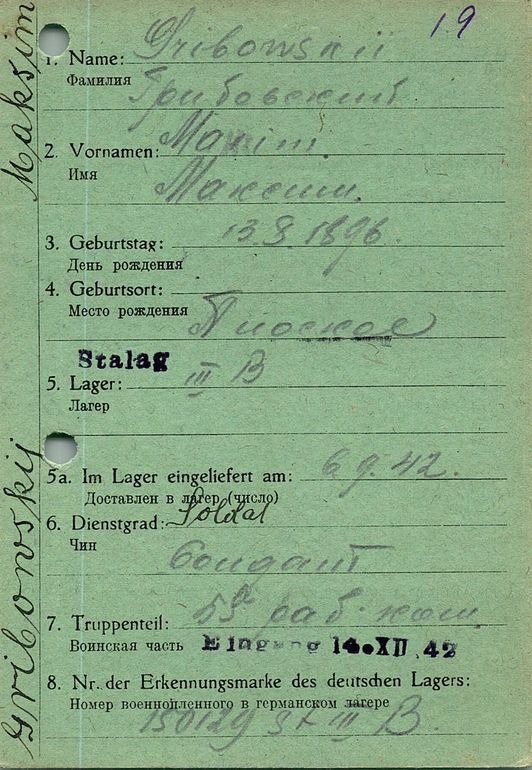 19
Maksim
Gribowskij
1. Name: Gribowskii
Фамилия
Грибовский
2. Vornamen: Maxim.
Имя
Максим.
3. Geburtstag: 13.8.1896.
День рождения
4. Geburtsort:
Место рождения
Stalag
5. Lager: III B
Лагер
5a. Im Lager eingeliefert am: 6 9. 42.
Доставлен в лагер (число)
6. Dienstgrad: Soldat
Чин
Солдат
7. Truppenteil: раб. ком.
Воинская часть Eingang 14.XII.42
8. Nr. der Erkennungsmarke des deutschen Lagers:
Номер военнопленного в германском лагере
150129 St III B.